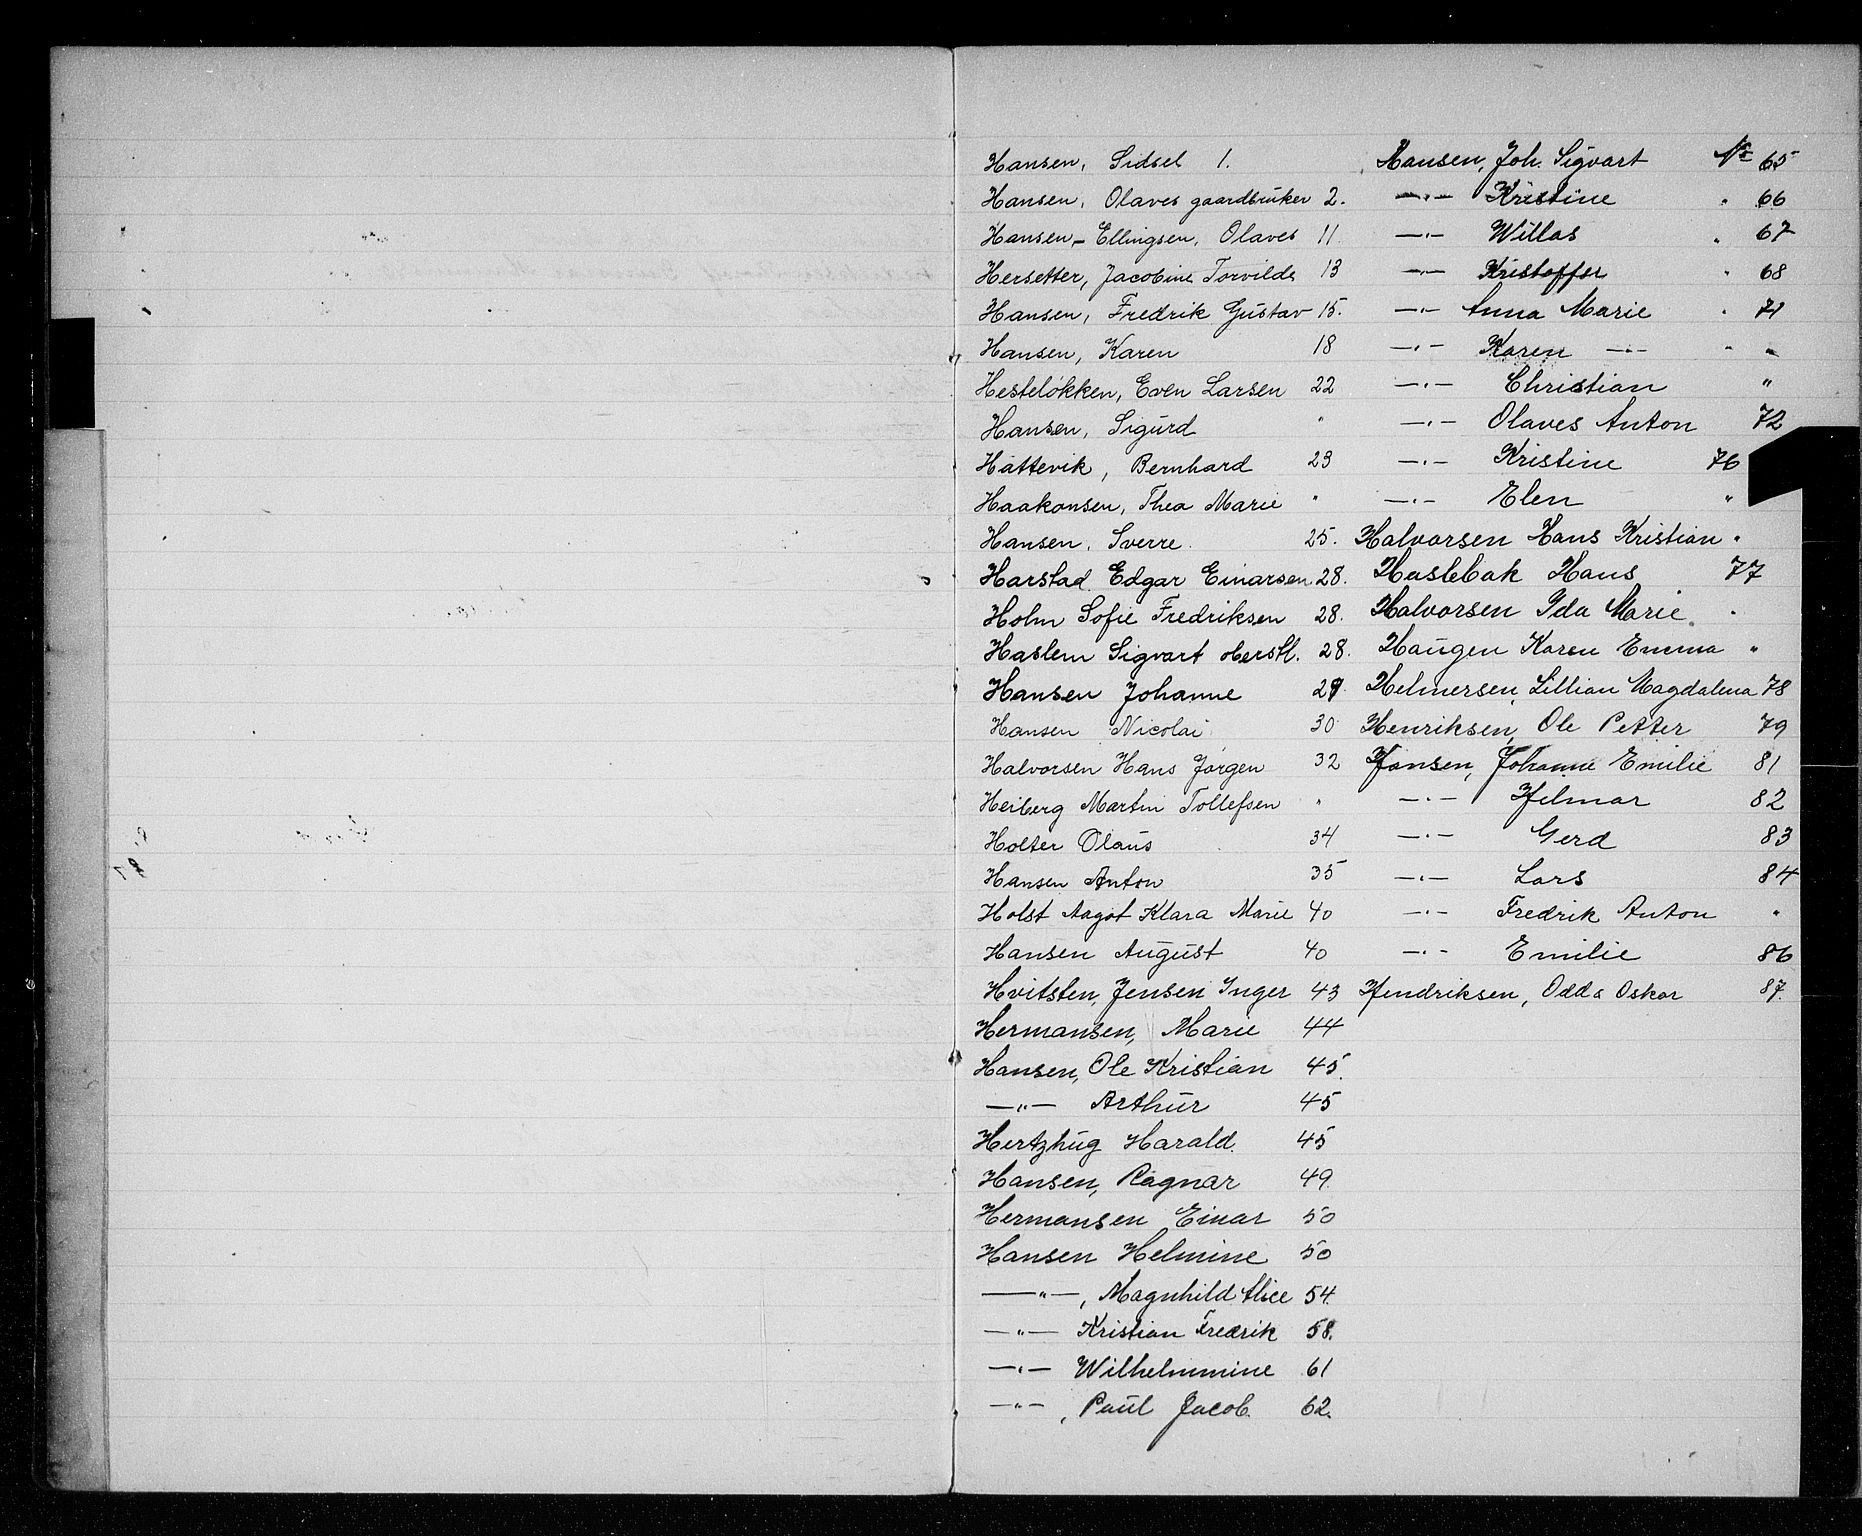 Hansen, Sidsel 1.
Hansen, Olaves gaardbruker 2.
Hansen-Ellingsen, Olaves 11
Hersetter, Jacobine Torvilds 13
Hansen, Fredrik Gustav 15.
Hansen, Karen 18
Hesteløkken, Even Larsen 22
Hansen, Sigurd "
Hattevik, Bernhard 23
Haakonsen, Thea Marie "
Hansen, Sverre. 25.
Harstad Edgar Einarsen 28.
Holm Sofie Fredriksen 28.
Haslem Sigvart oberstl. 28.
Hansen Johanne 29.
Hansen Nicolai 30
Halvorsen Hans Jørgen 32
Heiberg Martin Tollefsen "
Holter Olaus 34
Hansen Anton 35
Holst Aagot Klara Marie 40
Hansen August 40
Hvitsten, Jensen Inger 43
Hermansen, Marie 44
Hansen, Ole Kristian 45.
—"— Arthur 45
Hertzhug Harald. 45
Hansen, Ragnar 49
Hermansen Einar 50
Hansen Helmine 50
—"—, Magnhild Alice 54.
—"— Kristian Fredrik 58.
—"— Wilhelmmine 61
—"—, Paul Jacob. 62.
Hansen, Joh. Sigvart № 65
—"— Kristine " 66
—"— Willas " 67
—"— Kristoffer " 68
—"— Anna Marie " 71
—"— Karen —"— " "
—"— Christian "
—"— Olaves Anton 72
—"— Kristine 76
—"— Elen "
Halvorsen Hans Kristian "
Haslebak Hans 77
Halvorsen Ida Marie. "
Haugen Karen Emma "
Helmersen, Lillian Magdalena 78
Henriksen, Ole Petter 79
Hansen, Johanne Emilie 81
—"— Hilmar 82
—"— Gerd 83
—"— Lars 84
—"— Fredrik Anton "
—"— Emilie 86
Hendriksen, Odd & Oskar 87.